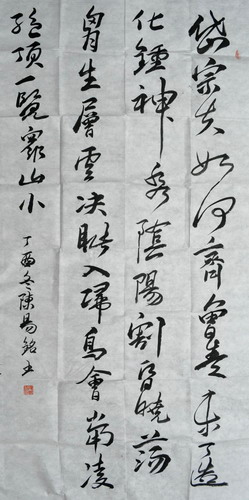 岱宗夫如何齊魯青未了造
化鍾神秀陰陽割昏曉蕩
胷生層雲決眥入歸鳥會當凌
絕頂一覽眾山小
丁酉冬陳易銘